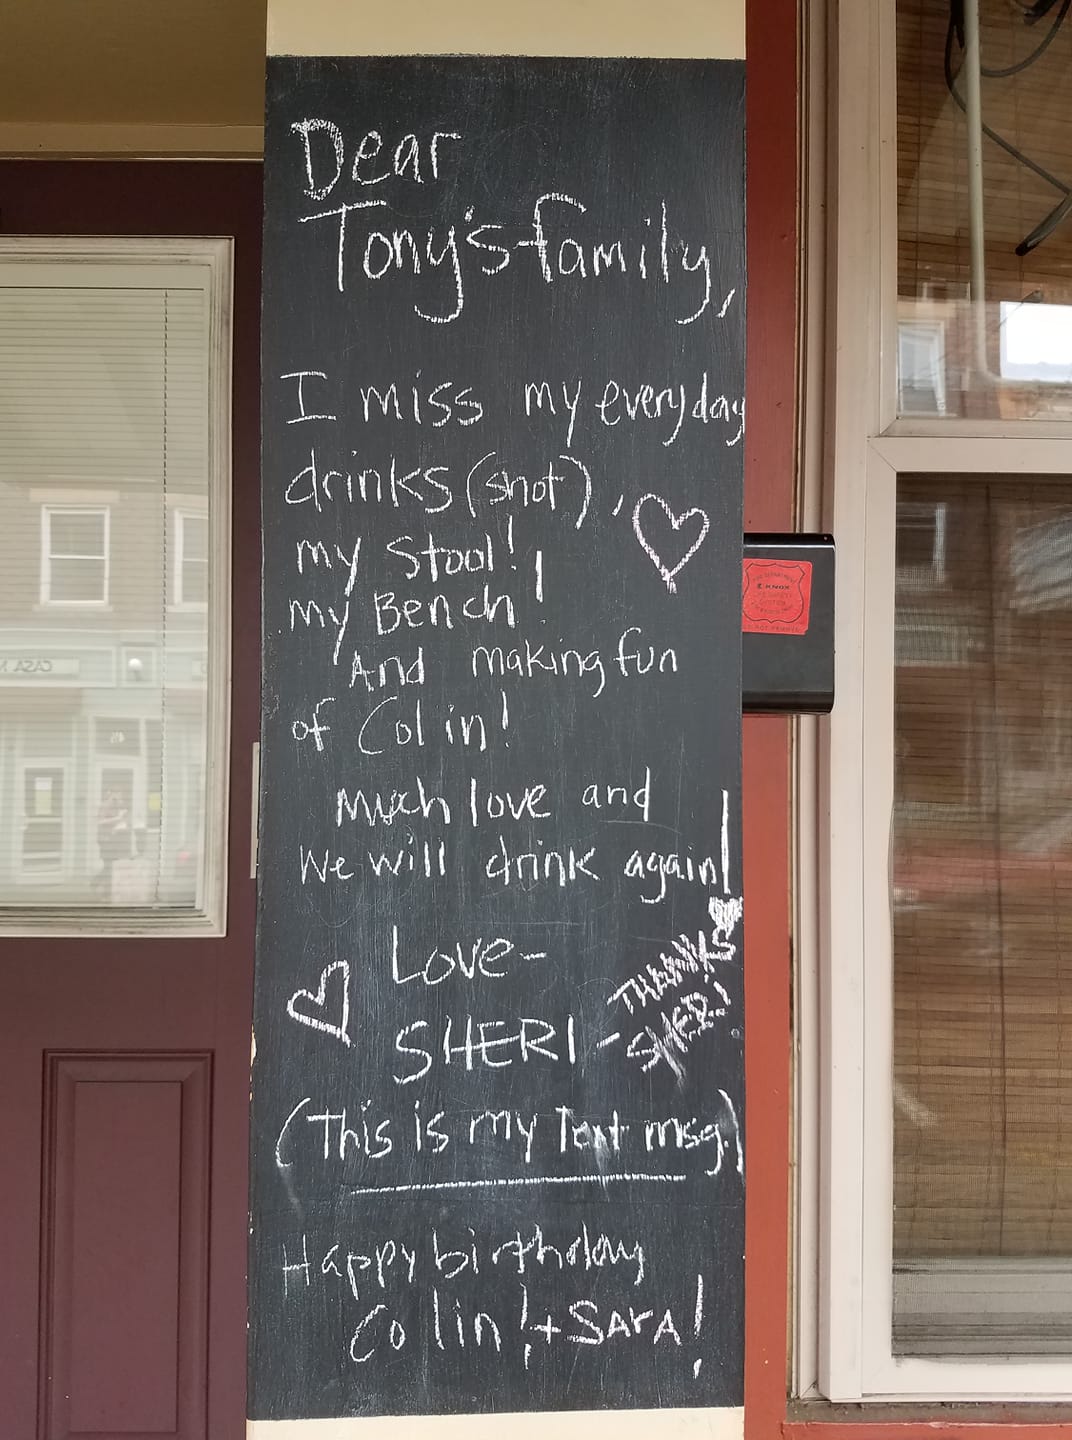 Dear
Tony's family,
I miss my everyday
drinks (shot),
my Stool!
my Bench!
And making fun
of Colin!
Much love and
We will drink again!
Love-
SHERI-
THANKS
SHERI!
(This is my Text msg.)
Happy birthday
Colin! + SARA!
KNOX
CASA